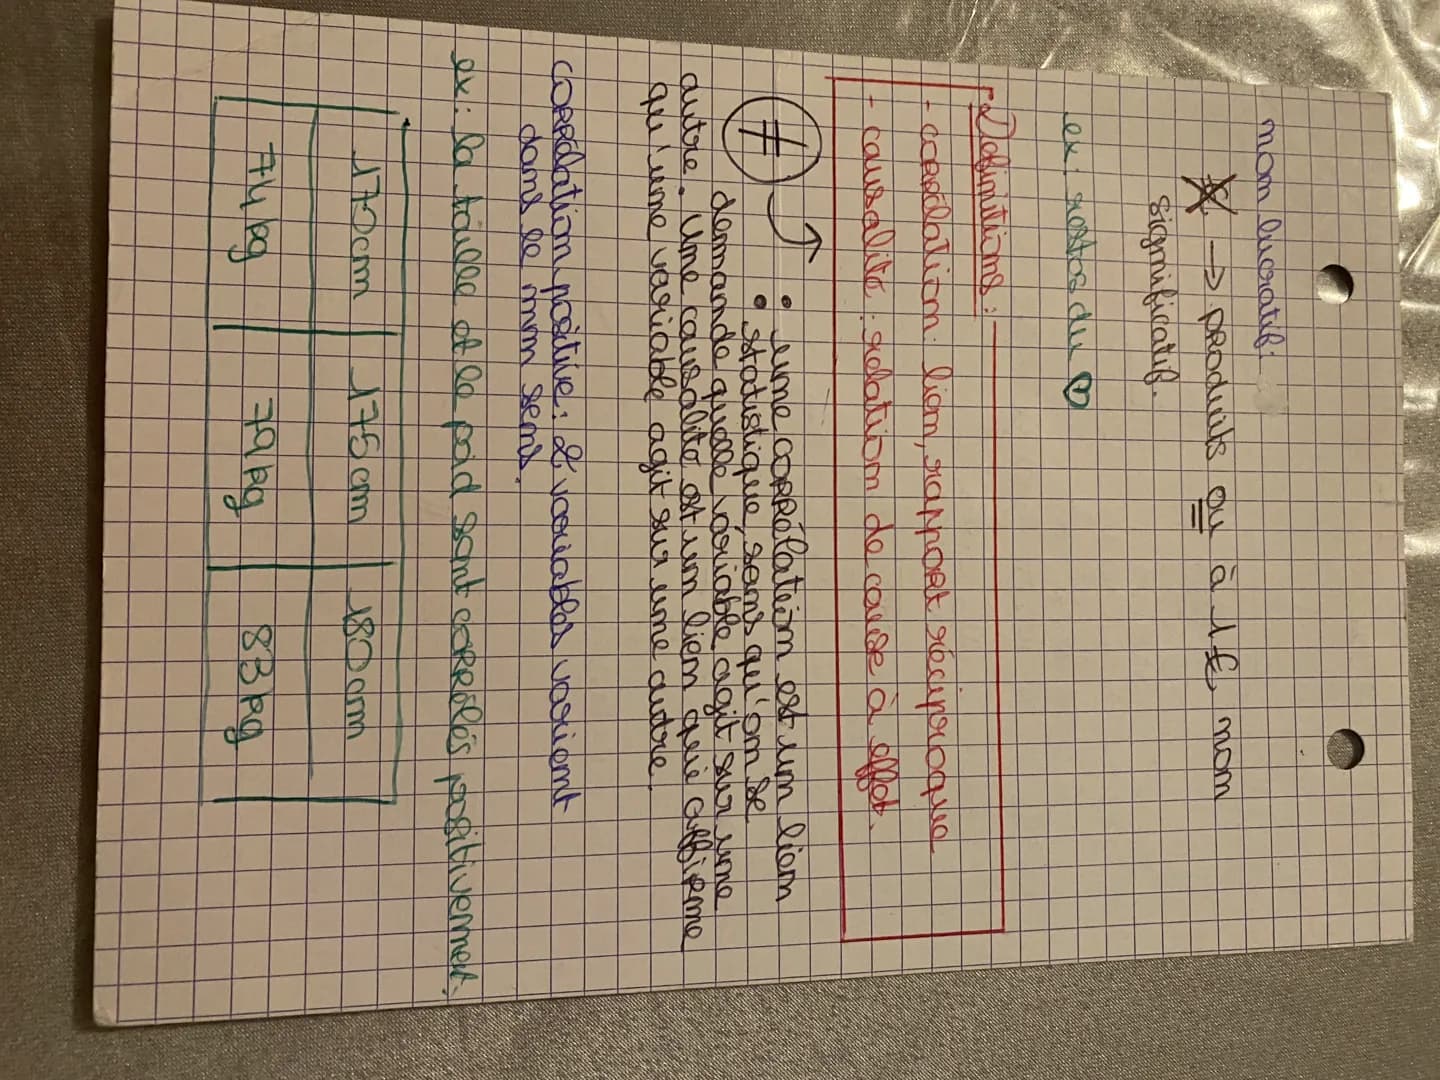 non lucratif:
€ → produits ou à 1€ non
significatif.
ex: restos du ♡
Définitions:
- corrélation: lien, rapport réciproque
- causalité: relation de cause à effet.
≠ • une corrélation est un lien
• statistique, sans qu'on se
demande quelle variable agit sur une
autre. Une causalité est un lien qui affirme
qu'une variable agit sur une autre.
corrélation positive: 2 variables varient
dans le mm sens.
ex: la taille et le poid sont corrélés positivement.
170cm 175cm 180cm
74kg 79kg 83kg